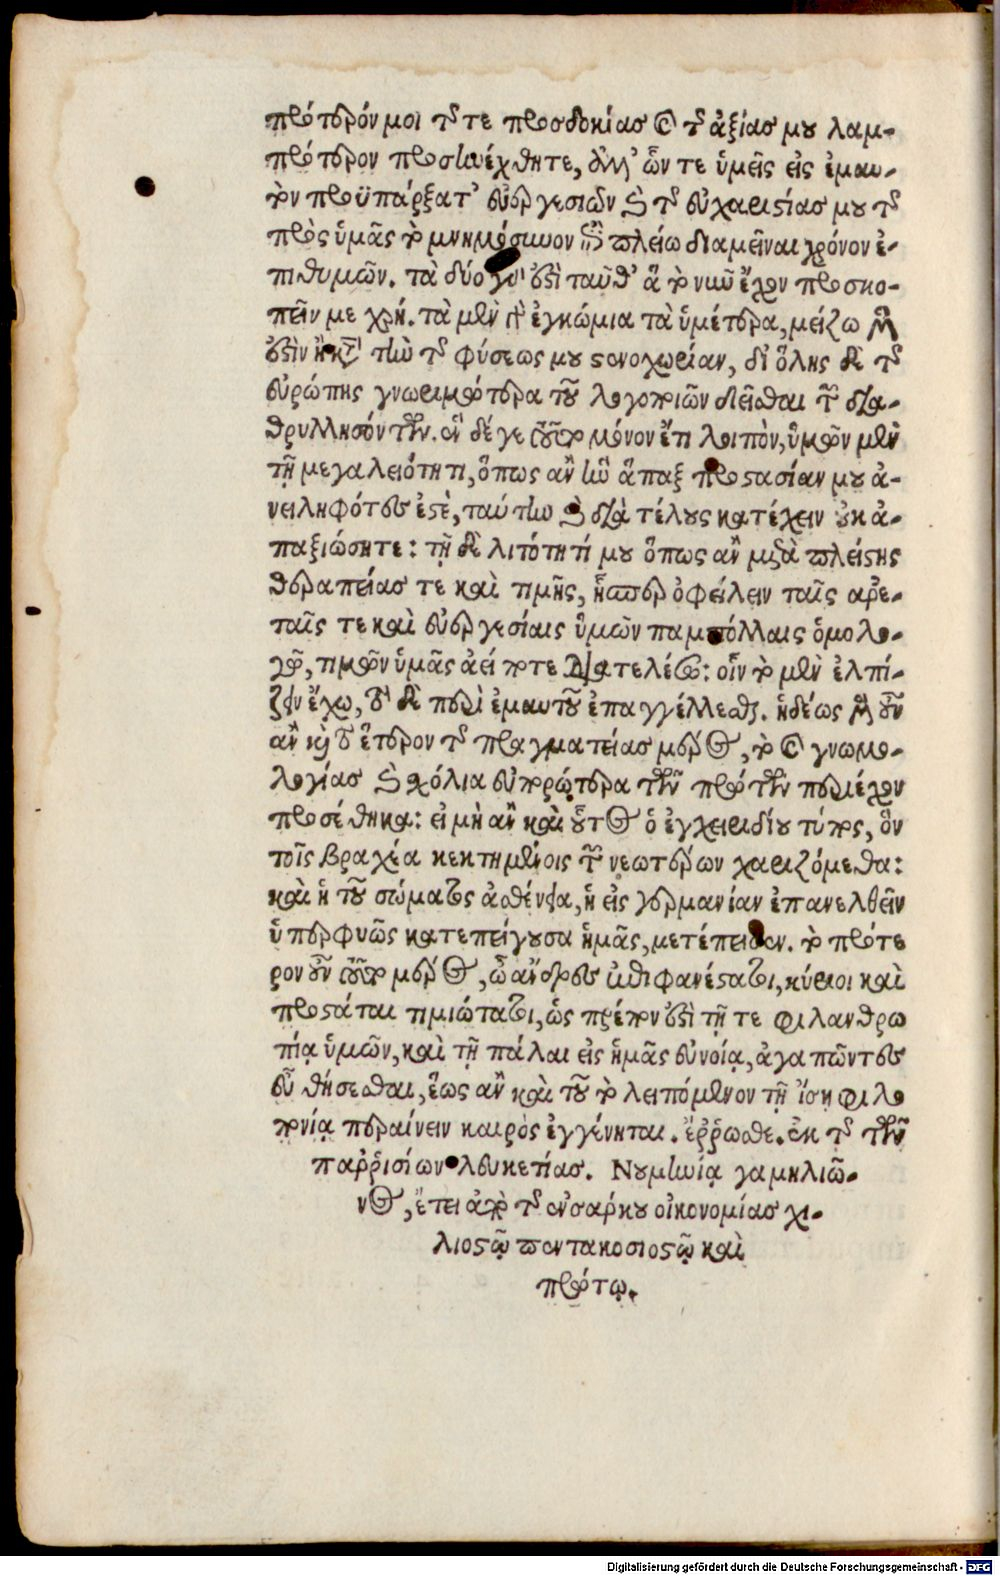 πρότερόν μοι τῆς τε προσδοκίας καὶ τῆς ἀξίας μου λαμ-
πρότερον προσηνέχθητε, ἀλλ' ὧν τε ὑμεῖς εἰς ἐμαυ-
τὸν προϋπάρξατ' εὐεργεσιῶν καὶ τῆς εὐχαριστίας μου τῆς
πρὸς ὑμᾶς τὸ μνημόσυνον ἐπὶ πλείω διαμεῖναι χρόνον ἐ-
πιθυμῶν. τὰ δύο γ' ἐστὶ ταῦθ' ἃ τὸ νῦν ἔχον προσκο-
πεῖν με χρή. τὰ μὲν γὰρ ἐγκώμια τὰ ὑμέτερα, μείζω μὲν
ἐστὶν ἢ κατὰ τὴν τῆς φύσεως μου στενοχωρίαν, δι' ὅλης δὲ τῆς
εὐρώπης γνωριμώτερα τοῦ λογοποιῶν διεῖσθαι τῶν δια-
θρυλλησόντων. ἓν δέ γε τοῦτο μόνον ἔτι λοιπὸν, ὑμῶν μὲν
τῇ μεγαλειότητι, ὅπως ἂν ἣν ἅπαξ προστασίαν μου ἀ-
νειληφότες ἐστὲ, ταύτην καὶ διὰ τέλους κατέχειν οὐκ ἀ-
παξιώσητε: τῇ δὲ λιτότητί μου ὅπως ἂν μετὰ πλείστης
θεραπείας τε καὶ τιμῆς, ἥνπερ ὀφείλειν ταῖς αρε-
ταῖς τε καὶ εὐεργεσίαις ὑμῶν παμπόλλαις ὁμολο-
γῶ, τιμῶν ὑμᾶς ἀεί ποτε διατελέσω: οἷν τὸ μὲν ἐλπί-
ζειν ἔχω, τὸ δὲ περὶ ἐμαυτοῦ ἐπαγγέλλεσθαι. ἡδέως μὲν οὖν
ἂν καὶ τὸ ἕτερον τῆς πραγματείας μέρος, τὸ καὶ γνωμο-
λογίας καὶ σχόλια εὐπορώτερα τῶν πρότων περιέχον
προσέθηκα: εἰ μὴ ἂν καὶ οὗτος ὁ ἐγχειριδίου τύπος, ὃν
τοῖς βραχέα κεκτημένοις τῶν νεωτέρων χαριζόμεθα:
καὶ ἡ τοῦ σώματος ἀσθένεια, ἡ εἰς γερμανίαν ἐπανελθεῖν
ὑπερφυῶς κατεπείγουσα ἡμᾶς, μετέπειθεν. τὸ πρότε
ρον οὖν τοῦτο μέρος, ὦ ἄνδρες ἐπιφανέστατοι, κύριοι καὶ
προστάται τιμιώτατοι, ὡς πρέπον ἐστὶ τῇ τε φιλανθρω
πίᾳ ὑμῶν, καὶ τῇ πάλαι εἰς ἡμᾶς εὐνοίᾳ, ἀγαπῶντες
εὖ θήσεσθαι, ἕως ἂν καὶ τοῦ τὸ λειπόμενον τῇ ἴσῃ φιλο
πονίᾳ περαίνειν καιρὸς ἐγγένηται. ἔῤῥωσθε. ἐκ τῆς τῶν
παῤῥισίων λευκετίας. Νουμηνίᾳ γαμηλιῶ-
νος, ἔτει ἀπὸ τῆς ἐνσάρκου οἰκονομίας χι-
λιοστῷ πεντακοσιοστῷ καὶ
πρότῳ.
Digitalisierung gefördert durch die Deutsche Forschungsgemeinschaft - DFG